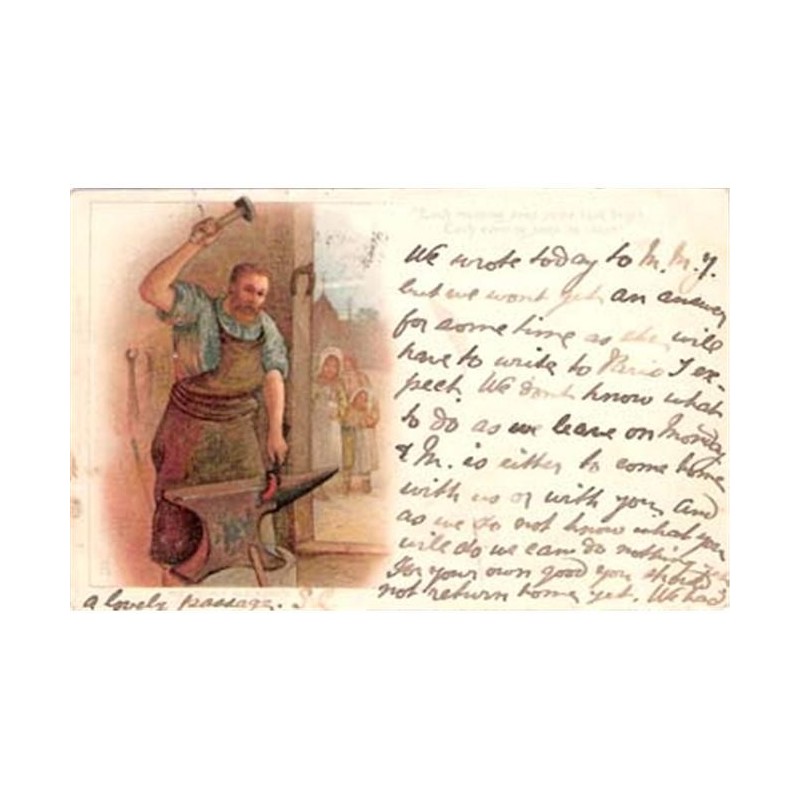 "Each morning sees some task begin,
Each evening sees its close."
We wrote today to M. M. Y.
but we wont get an answer
for some time as she will
have to write to Paris I ex-
pect. We dont know what
to do as we leave on Monday
& M. is either to come home
with us or with you. And
as we do not know what you
will do we can do nothing yet
For your own good you should
not return home yet. We had
a lovely passage. S.C.